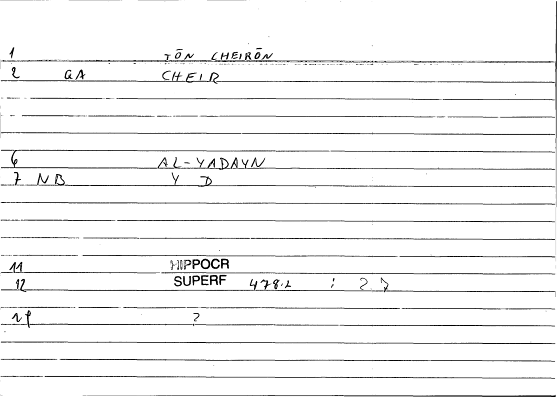 1 TŌN CHEIRŌN
2 GA CHEIR
6 AL-YADAYN
7 NB Y D
11 HIPPOCR
12 SUPERF 478.2 :
?